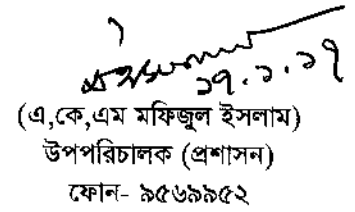 ১৭.১.১৭
(এ,কে,এম মফিজুল ইসলাম)
উপপরিচালক (প্রশাসন)
ফোন- ৯৫৬৯৯৫২